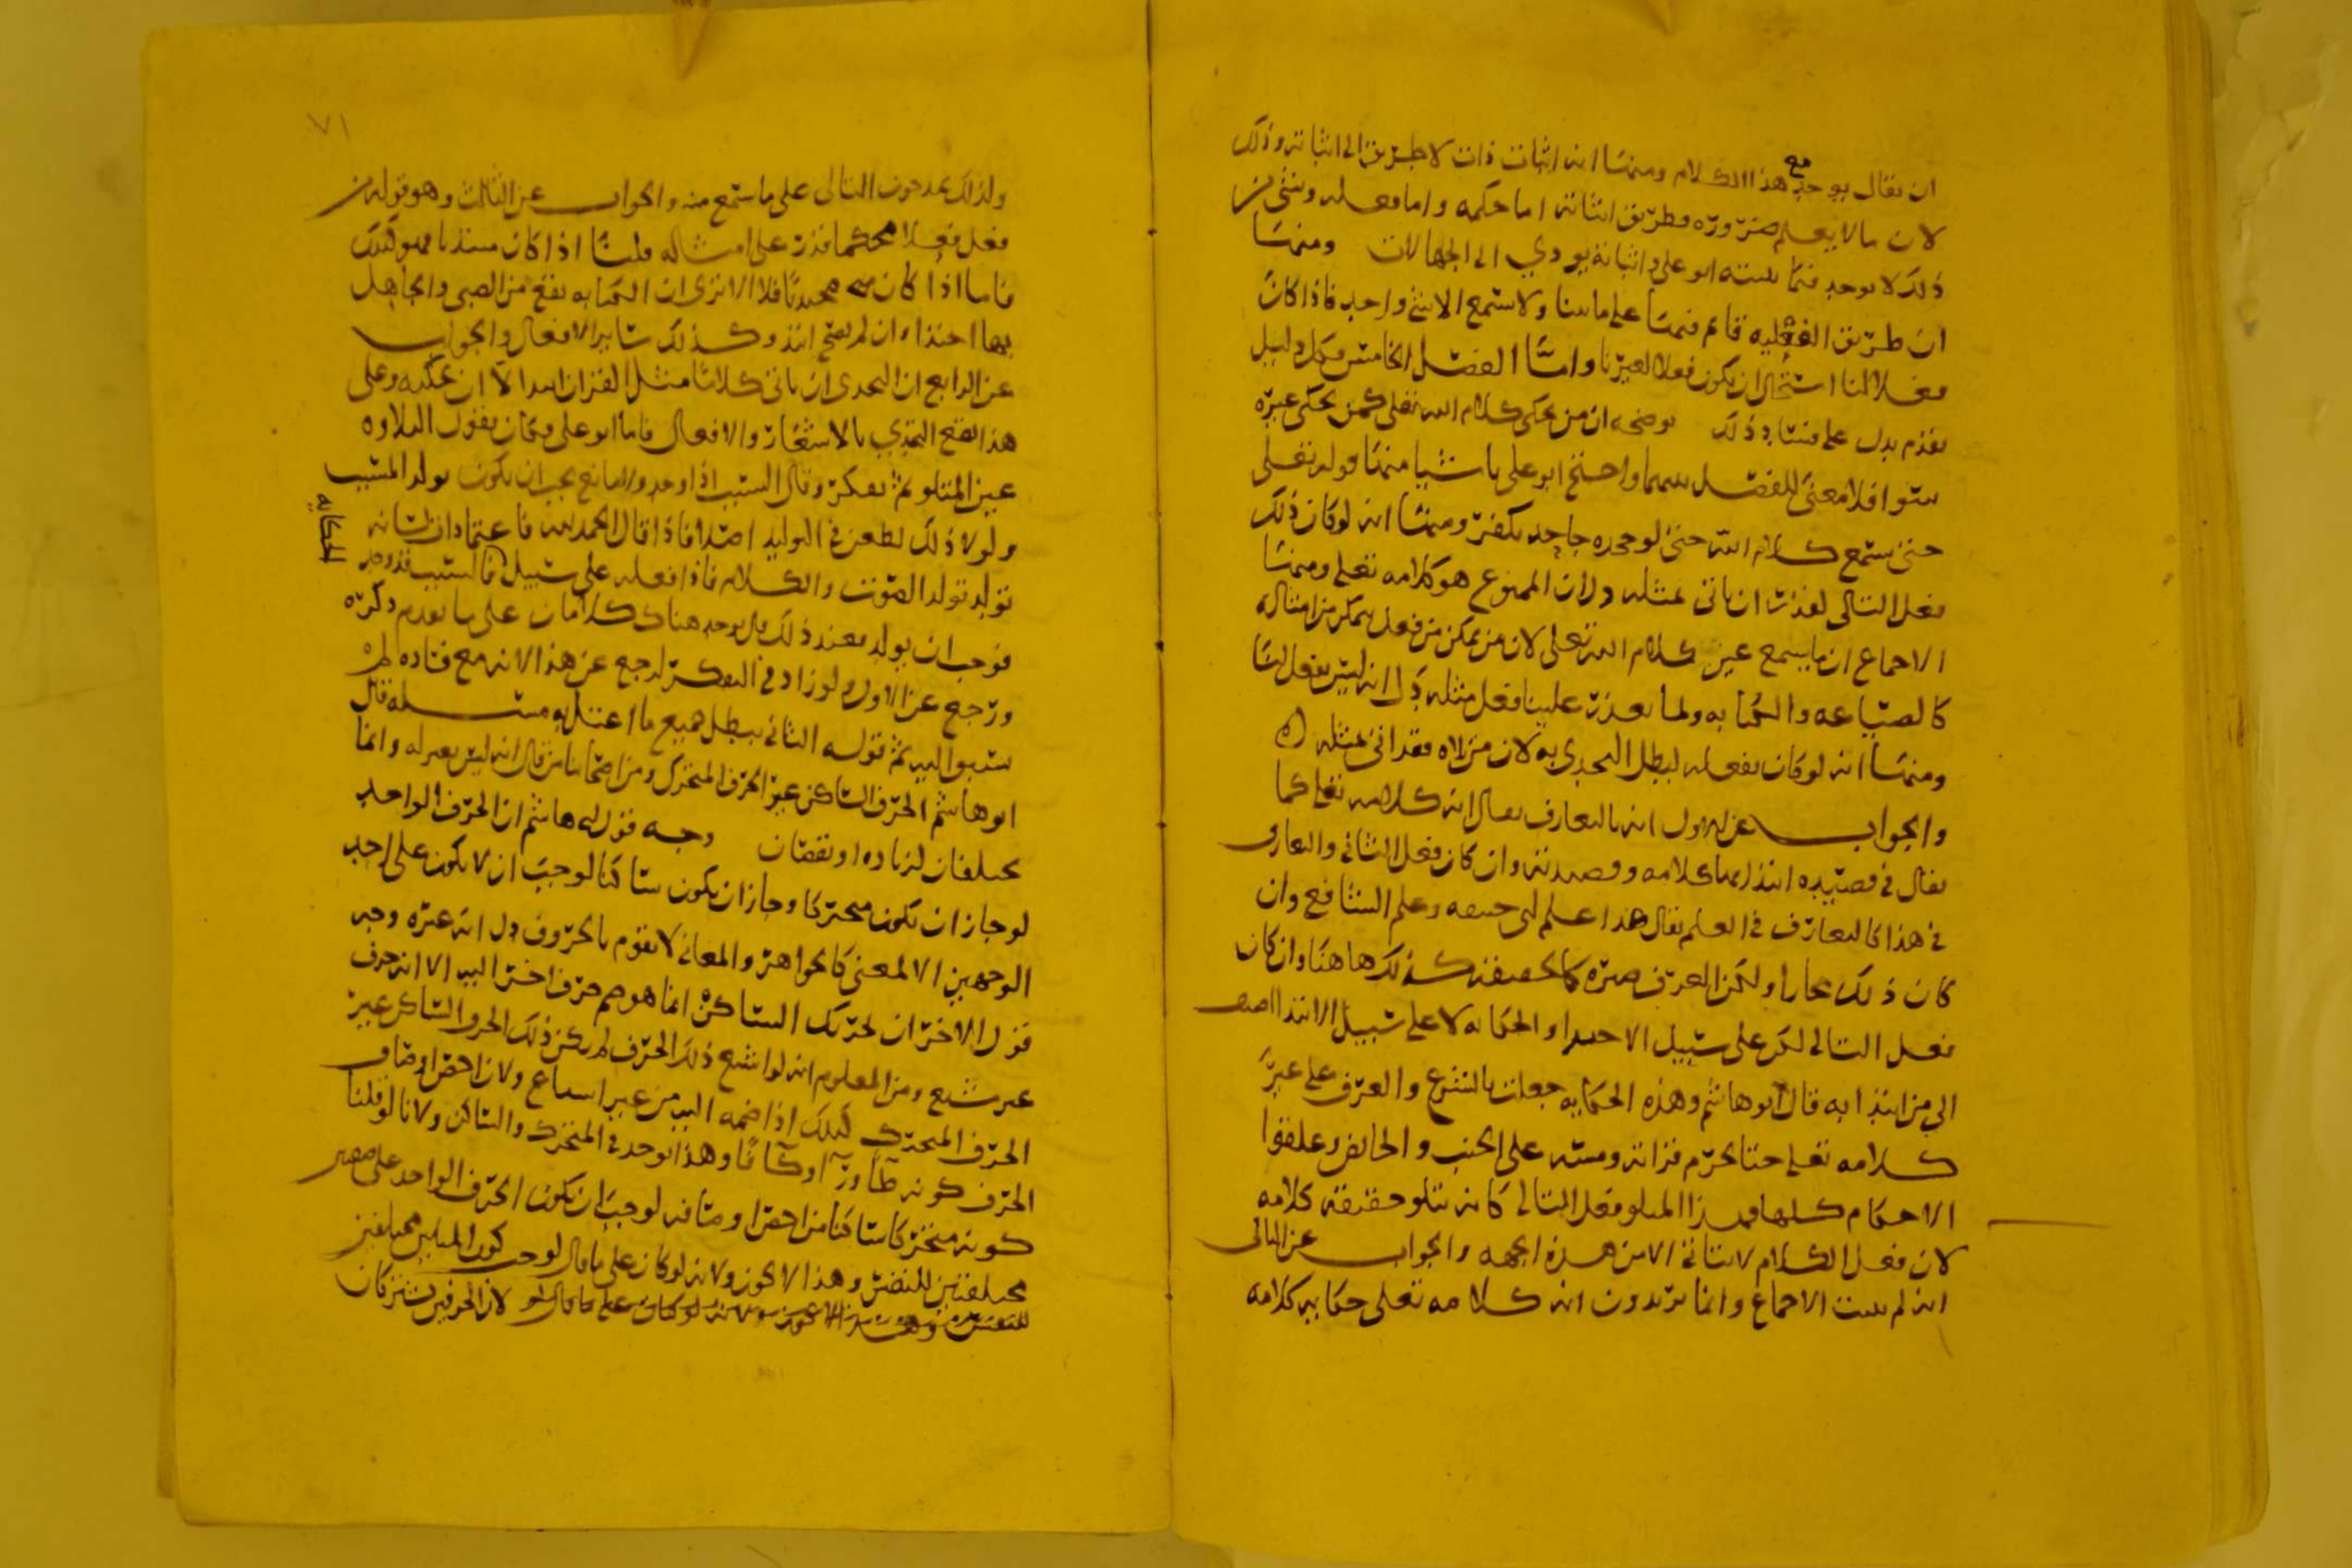 ان يقال يوجد مع هذا الكلام ومنها انه اثبات ذات لا طريق الى اثباته وذلك
لان ما لا يعلم ضرورة فطريق اثباته اما حكمه واما فعله وشي من
ذلك لا يوجد فما يثبته ابو علي واثباته يودي الى الجهالات ومنها
ان طريق الفعليه قائم فمنا على ما بينا ولا يسمع الا شي واحد فاذا كان
فعلا لنا استحال ان يكون فعلا لغيرنا واما الفصل الخامس فكل دليل
تقدم يدل على فساد ذلك يوضحه ان من يحكى كلام الله تعلى كمن يحكى غيره
سوا فلا معنى للفصل بينهما واحتج ابو علي باشيا منها قوله تعلى
حتى يسمع كلام الله حتى لو جحده جاحد يكفر ومنها انه لو كان ذلك
فعل التالى لقدر ان ياتى بمثله ولان المسموع هو كلامه تعلى ومنها
الاجماع ان ما يسمع عين كلام الله تعلى لان من يمكن من فعل يمكن من امثاله
كالصياغه والكتابه ولما تعذر علينا فعل مثله دل انه ليس بفعل لنا
ومنها انه لو كان بفعله لبطل التحدى به لان من تلاه فقد اتى بمثله
والجواب عن الاول انه بالتعارف يقال انه كلام الله تعلى كما
يقال في قصيده انشدها كلامه وقصيدته وان كان فعل الثاني والتعارف
في هذا كالتعارف في العلم يقال هذا علم ابى حنيفه وعلم الشافعي وان
كان ذلك مجازا ولكن العرف صيره كالحقيقه كذلك هاهنا وان كان
فعل التالى لكن على سبيل الاحتذا والحكايه لا على سبيل الابتدا اضيف
الى من ابتدا به قال ابو هاشم وهذه الحكايه جعلت بالشرع والعرف على عين
كلامه تعلى حتى يحرم قراته ومسه على الجنب والحائض وعلقوا
الاحكام كلها بهذا المتلو فعل التالى كانه يتلو حقيقة كلامه
لان فعل الكلام لا يتاتى الا من هذه الجهه والجواب عن الثاني
انه لم يثبت الاجماع وانما يريدون انه كلامه تعلى حكاية كلامه
٧١
ولذلك يمدحون التالى على ما سمع منه والجواب عن الثالث وهو قوله من
فعل فعلا محكما قدر على امثاله قلنا اذا كان مبتديا فهو كذلك
فاما اذا كان محتذيا فلا الا ترى ان الكتابه تقع من الصبى والجاهل
بها احتذاء وان لم يصح ابتدا وكذلك ساير الافعال والجواب
عن الرابع ان التحدى ان ياتى كلاما مثل القران ابتدا لا ان يحكيه وعلى
هذا يقع التحدي بالاشعار والافعال فاما ابو علي فكان يقول التلاوه
غير المتلو ثم تفكر وقال السبب اذا وجد ولا مانع يجب ان يكون يولد المسبب
ولولا ذلك لطعن في التوليد اصلا فاذا قال الحمد لله فاعتمادات لسانه
تولد تولد الصوت والكلام فاذا فعله على سبيل الحكايه فالسبب قد وجد
فوجب ان يولد فعند ذلك قال يوجد هناك كلامان على ما تقدم ذكره
ورجع عن الاول ولو زاد في التفكر لرجع عن هذا الا انه مع فساده لم
ينسبوا اليه ثم قوله الثاني يبطل جميع ما اعتل به مسئله قال
ابو هاشم الحرف الساكن غير الحرف المتحرك ومن اصحابنا من قال انه ليس بغير له وانما
يختلفان لزياده او نقصان وجه قول ابى هاشم ان الحرف الواحد
لو جاز ان يكون متحركا وجاز ان يكون ساكنا لوجب ان لا يكون على احد
الوجهين الا لمعنى كالجواهر والمعاني لا تقوم بالحروف دل انه غيره وجه
قول الاخر ان تحريك الساكن انما هو ضم حرف اخر اليه الا انه حرف
غير مشبع ومن المعلوم انه لو اشبع ذلك الحرف لم يكن ذلك الحرف الساكن غير
الحرف المتحرك كذلك اذا ضمه اليه من غير اشباع ولان اخص اوصاف
الحرف كونه طاً او رآ او كافا وهذا يوجد في المتحرك والساكن ولانا لو قلنا
كونه متحركا ساكنا من اخص اوصافه لوجب ان يكون الحرف الواحد على صفتين
مختلفتين للنفس وهذا لا يجوز ولانه لو كان على ما قال لوجب كون المثلين مختلفين
لان الحرفين يشتركان